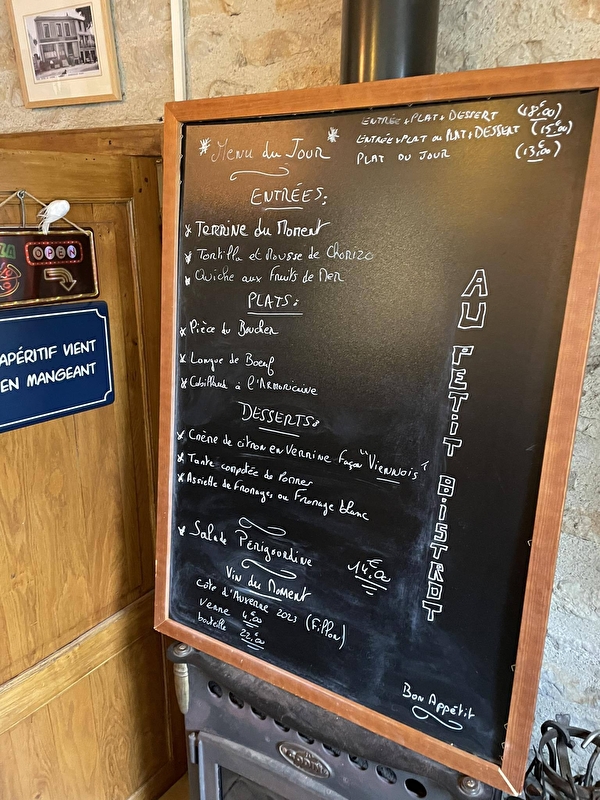 ENTRÉE + PLAT + DESSERT (18.€00)
ENTRÉE + PLAT OU PLAT + DESSERT (15.€00)
PLAT DU JOUR (13.€00)
* MENU du JOUR *
ENTRÉES:
* TERRINE du MOMENT
* Tortilla et Mousse de Chorizo
* Quiche aux Fruits de Mer
PLATS:
* Pièce du Boucher
* Langue de Boeuf
* Cabillaud à l'Armoricaine
DESSERTS:
* Crème de citron en Verrine façon "Viennois"
* Tarte compotée de Pommes
* Assiette de Fromages ou Fromage blanc
* Salade Périgourdine 14.€00
Vin du Moment
Côte d'Auvergne 2023
verre 4.€00
bouteille 22.€00
AU PETIT BISTROT
BON APPÉTIT
OPEN
APÉRITIF VIENT
EN MANGEANT